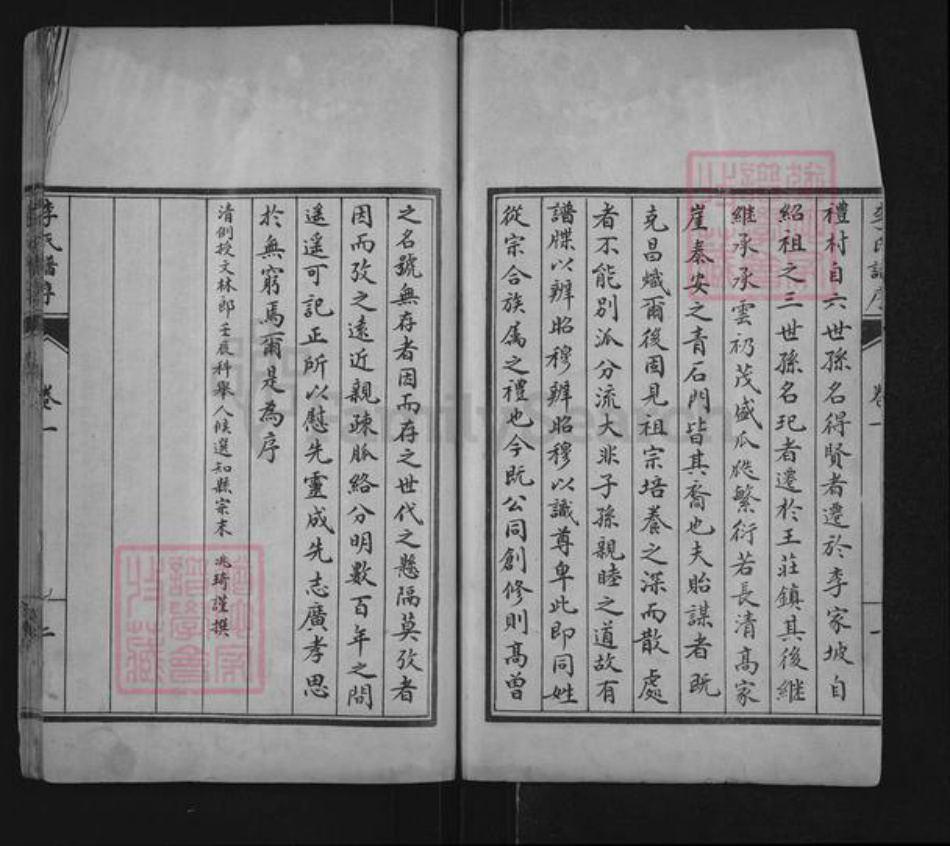 李氏譜序 卷一 一
禮村自六世孫名得賢者遷於李家坡自
紹祖之三世孫名玘者遷於王莊鎮其後繼
繼承承雲礽茂盛瓜瓞繁衍若長清高家
崖秦安之青石門皆其裔也夫貽謀者既
克昌熾爾後固見祖宗培養之深而散處
者不能別派分流大非子孫親睦之道故有
譜牒以辨昭穆辨昭穆以識尊卑此即同姓
從宗合族屬之禮也今既公同創修則高曾
之名號無存者因而存之世代之懸隔莫攷者
因而攷之遠近親疎脈絡分明數百年之間
遥遥可記正所以慰先靈成先志廣孝思
於無窮焉爾是為序
清例授文林郎壬辰科舉人候選知縣宗末 兆琦謹撰
李氏譜序 卷一 二
FamilySearch